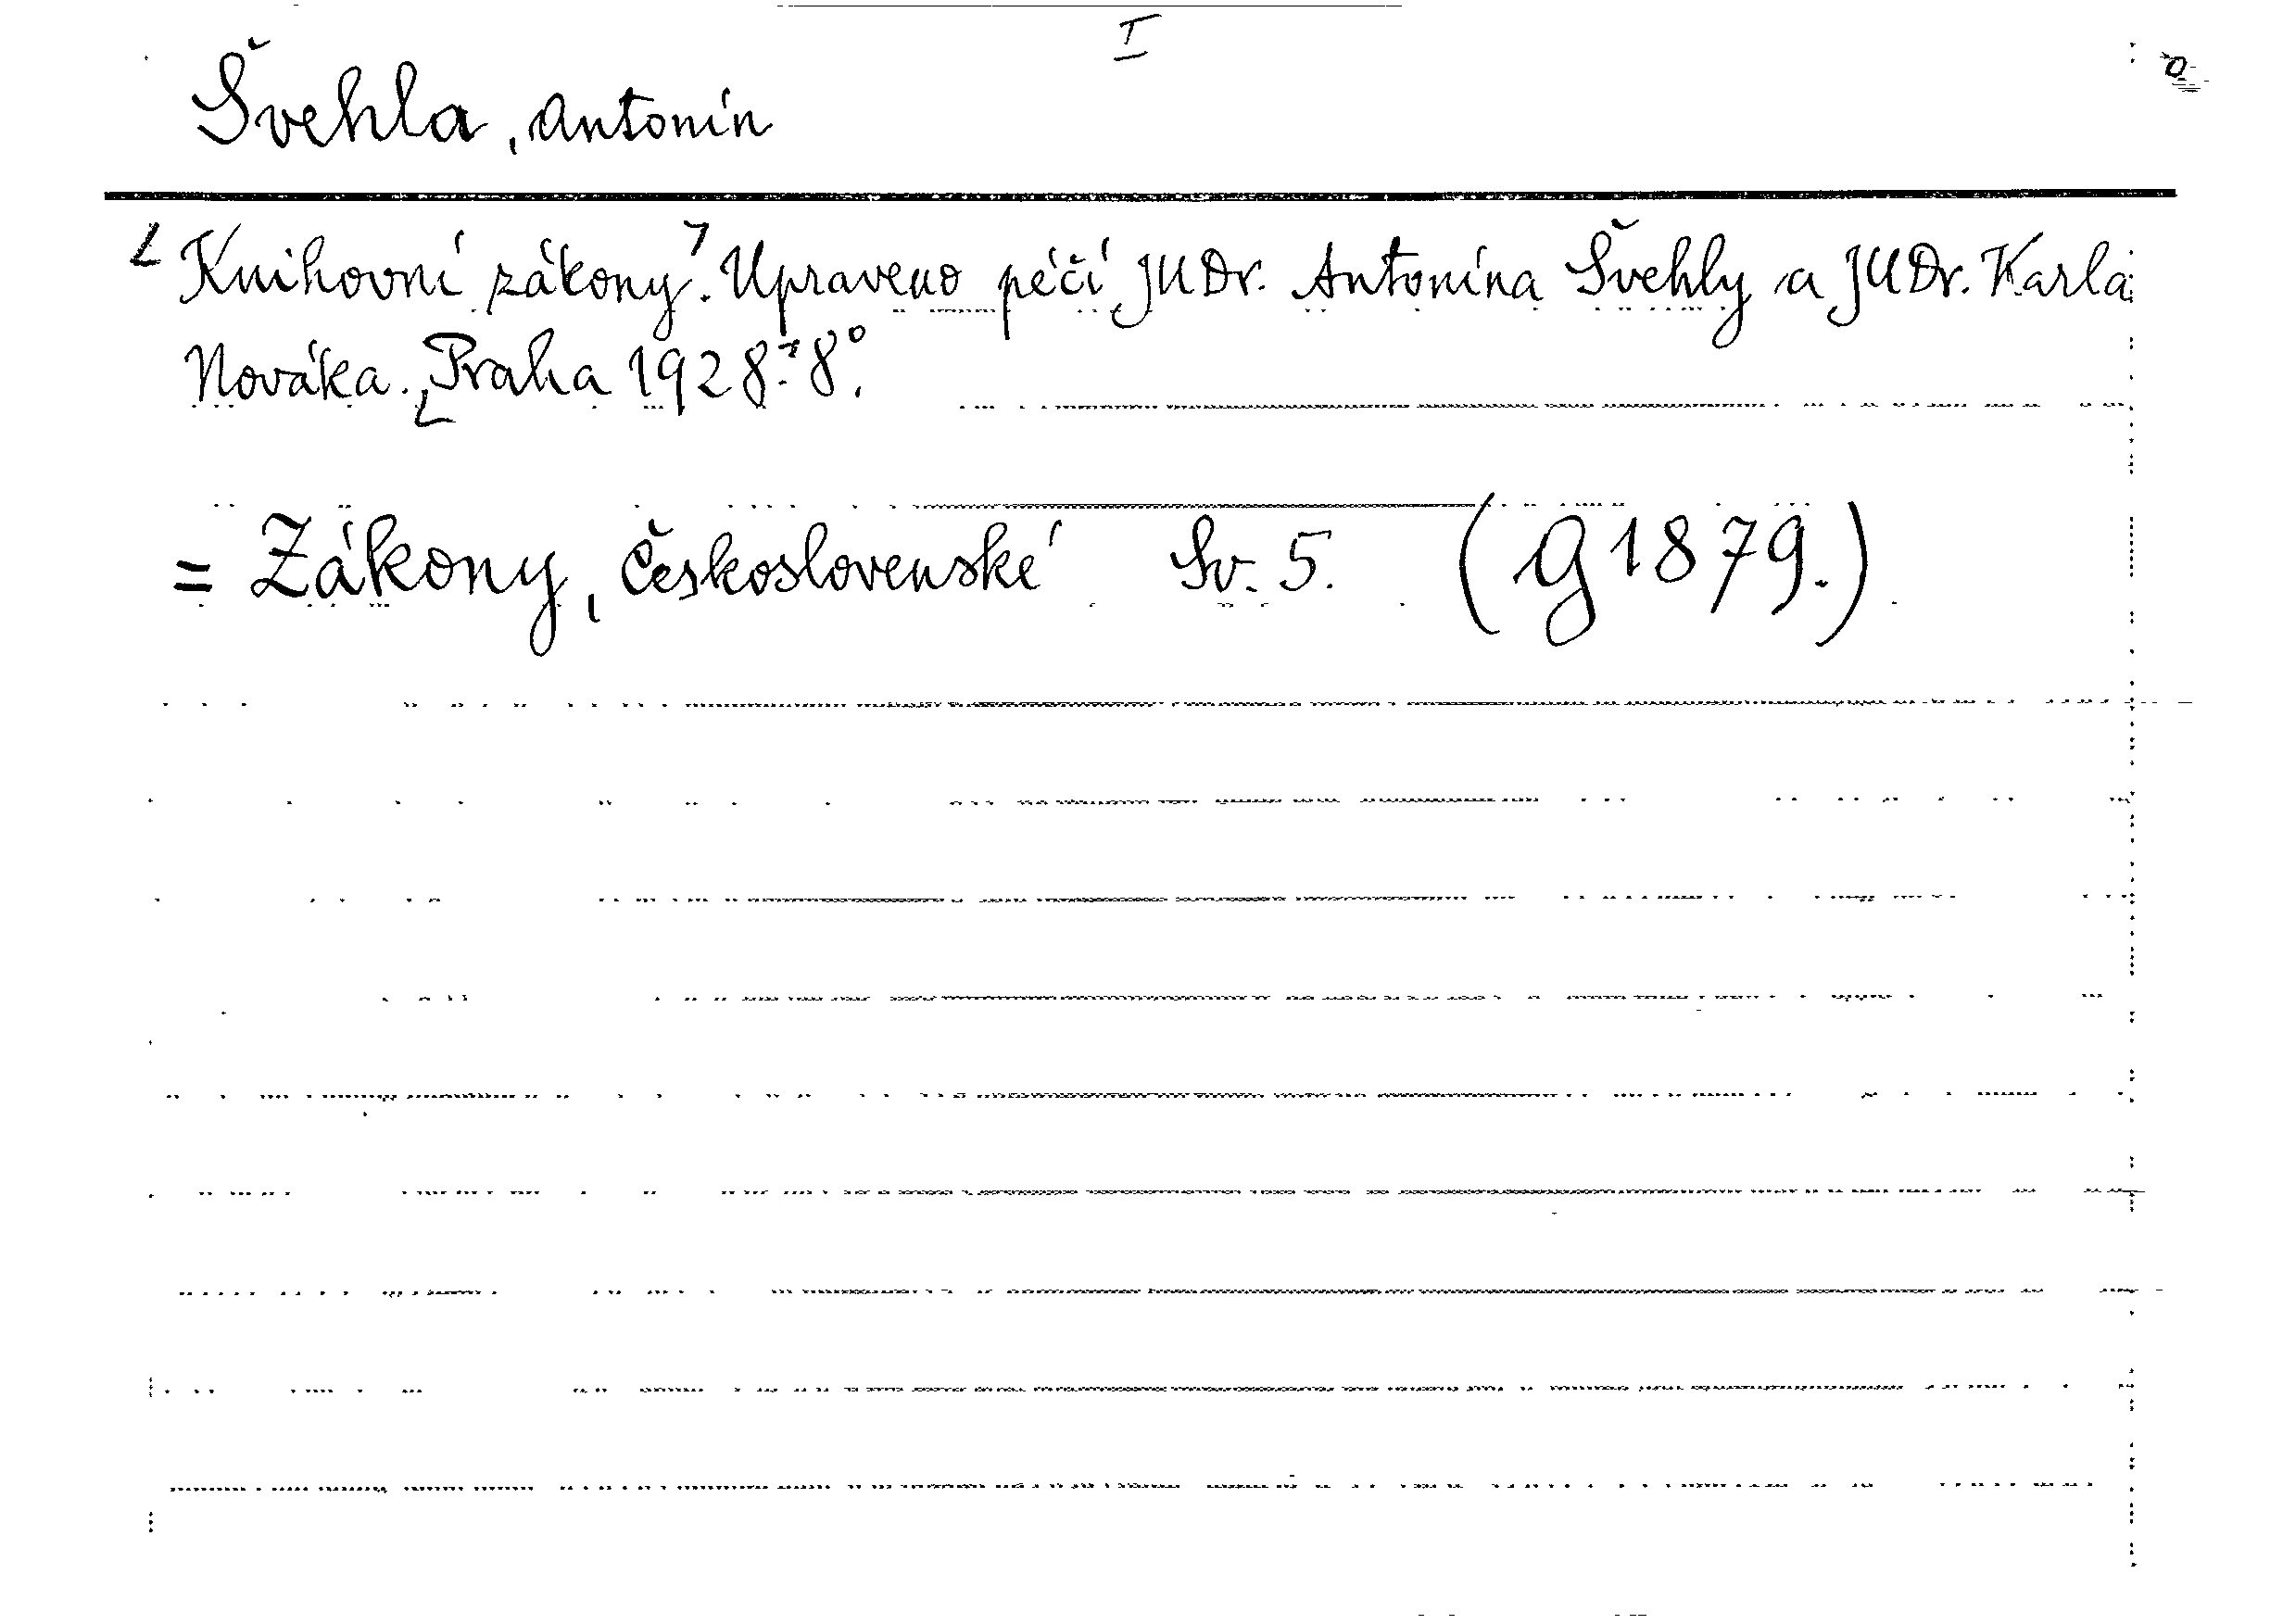 I
Švehla, Antonín
Knihovní zákony. Upraveno péčí JUDr. Antonína Švehly a JUDr. Karla
Nováka. Praha 1928. 8°.
= Zákony, československé Sv. 5. (G 1879.)